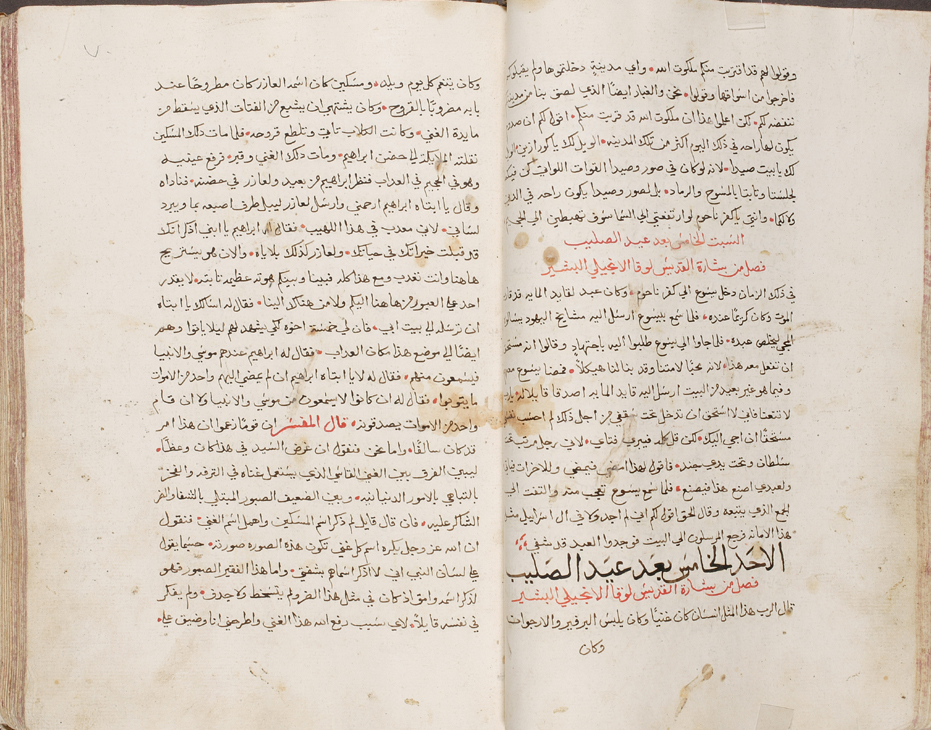 وقولوا لهم قد اقتربت منكم ملكوت الله • واي مدينةٍ دخلتموها ولم يقبلوكم
فاخرجوا من اسواقها وقولوا • نحن والغبار ايضًا الذي لصق بنا من مدينتكم
ننفضه لكم • لكن اعلموا هذا ان ملكوت الله قد قربت منكم • اقول لكم ان سدوم
يكون لها راحه في ذلك اليوم اكثر من تلك المدينه • الويل لك يا كورازين الويل
لك يا بيت صيدا • لانه لو كان في صور وصيدا القوات اللواتي كن فيكم
لجلستا وتابتا بالمسوح والرماد • بل لصور وصيدا يكون راحه في الدين
وانتي يا كفر ناحوم لو ارتفعتي الي السما سوف تهبطين الي الجحيم
السبت الخامس بعد عيد الصليب
فصل من بشارة القديس لوقا الانجيلي البشير
في ذلك الزمان دخل يسوع الي كفر ناحوم • وكان عبد لقايد المايه قد قارب
الموت وكان كريمًا عنده • فلما سمع بيسوع ارسل اليه مشايخ اليهود يسالوه
المجي ليخلص عبده • فلما جاوا الي يسوع طلبوا اليه باجتهادٍ وقالوا انه مستحق
ان تفعل معه هذا • لانه محبًا لامتنا وقد بنا لنا هيكلًا • فمضا يسوع معهم
وفيما هو غير بعيد من البيت ارسل اليه قايد المايه اصدقا قايلا له يا رب
لا تتعنا فاني لا استحق ان تدخل تحت سقفي من اجل ذلك لم احسب نفسي
مستحقًا ان اجي اليك • لكن قل كلمه فيبري فتاي • لاني رجل مرتب تحت
سلطان وتحت يدي جند • فاقول لهذا امضي فيمضي وللاخر ات فيات
ولعبدي اصنع هذا فيصنع • فلما سمع يسوع تعجب منه والتفت الي
الجمع الذي يتبعه وقال الحق اقول لكم اني لم اجد ولا في ال اسراييل مثل
هذا الامانه فرجع المرسلون الي البيت فوجدوا العبد قد شفي
الاحد الخامس بعد عيد الصليب
فصل من بشارة القديس لوقا الانجيلي البشير
قال الرب هذا المثل انسان كان غنيًا وكان يلبس البرفير والارجوان
وكان
وكان يتنعم كل يوم وبله • ومسكين كان اسمه العازر كان مطروحًا عند
بابه مضروبًا بالقروح • وكان يشتهي ان يشبع من الفتات الذي يسقط من
مايدة الغني • وكانت الكلاب تاتي وتلطع قروحه • فلما مات ذلك المسكين
نقلته الملايكة الي حضن ابراهيم • ومات ذلك الغني وقبر • فرفع عينيه
وهو في الجحيم في العداب فنظر ابراهيم من بعيد ولعازر في حضنه • فناداه
وقال يا ابتاه ابراهيم ارحمني وارسل لعازر ليبل طرف اصبعه بما ويبرد
لساني • لاني معدب في هذا اللهيب • فقال له ابراهيم يا ابني اذكر انك
قد قبلت خيراتك في حياتك • ولعازر كذلك بلاياه • والان هو يستريح
هاهنا وانت تعدب ومع هذا كله فبيننا وبينكم هوته عظيمه ثابته • لا يقدر
احد على العبور من هاهنا اليكم ولا من هناك الينا • فقال له اسالك يا ابتاه
ان ترسله الي بيت ابي • فان لي خمسة اخوه لكي يشهد لهم ليلا ياتوا وهم
ايضًا الي موضع هذا مكان العداب • فقال له ابراهيم عندهم موسي والانبيا
فليسمعون منهم • فقال له لا يا ابتاه ابراهيم ان لم يمضي اليهم واحد من الاموات
ما يتوبوا • فقال له ان كانوا لا يسمعون من موسي والانبيا ولا ان قام
واحد من الاموات يصدقونه • قال المفسر ان قومًا زعموا ان هذا امر
قد كان سالفًا • واما نحن فنقول ان غرض السيد في هذا كان وعظًا •
ليبين الفرق بين الغني القاسي الذي يستعمل غناه في الترفه والفخر
بالتباهي بالامور الدنيانيه • وبين الضعيف الصبور المبتلي بالشقا والفقر
الشاكر عليه • فان قال قايل لم ذكر اسم المسكين واهمل اسم الغني • فنقول
ان الله عز وجل يكره اسم كل غني تكون هذه الصوره صورته • حسبما يقول
علي لسان النبي اني لا اذكر اسماهم بشفتي • واما هذا الفقير الصبور فهو
لذكر اسمه وامق اذ كان في مثل هذا الضر ولم يتسخط ولا جدف • ولم يفكر
في نفسه قايلاً • لاي سبب رفع الله هذا الغني واطرحني انا وضيق علي •